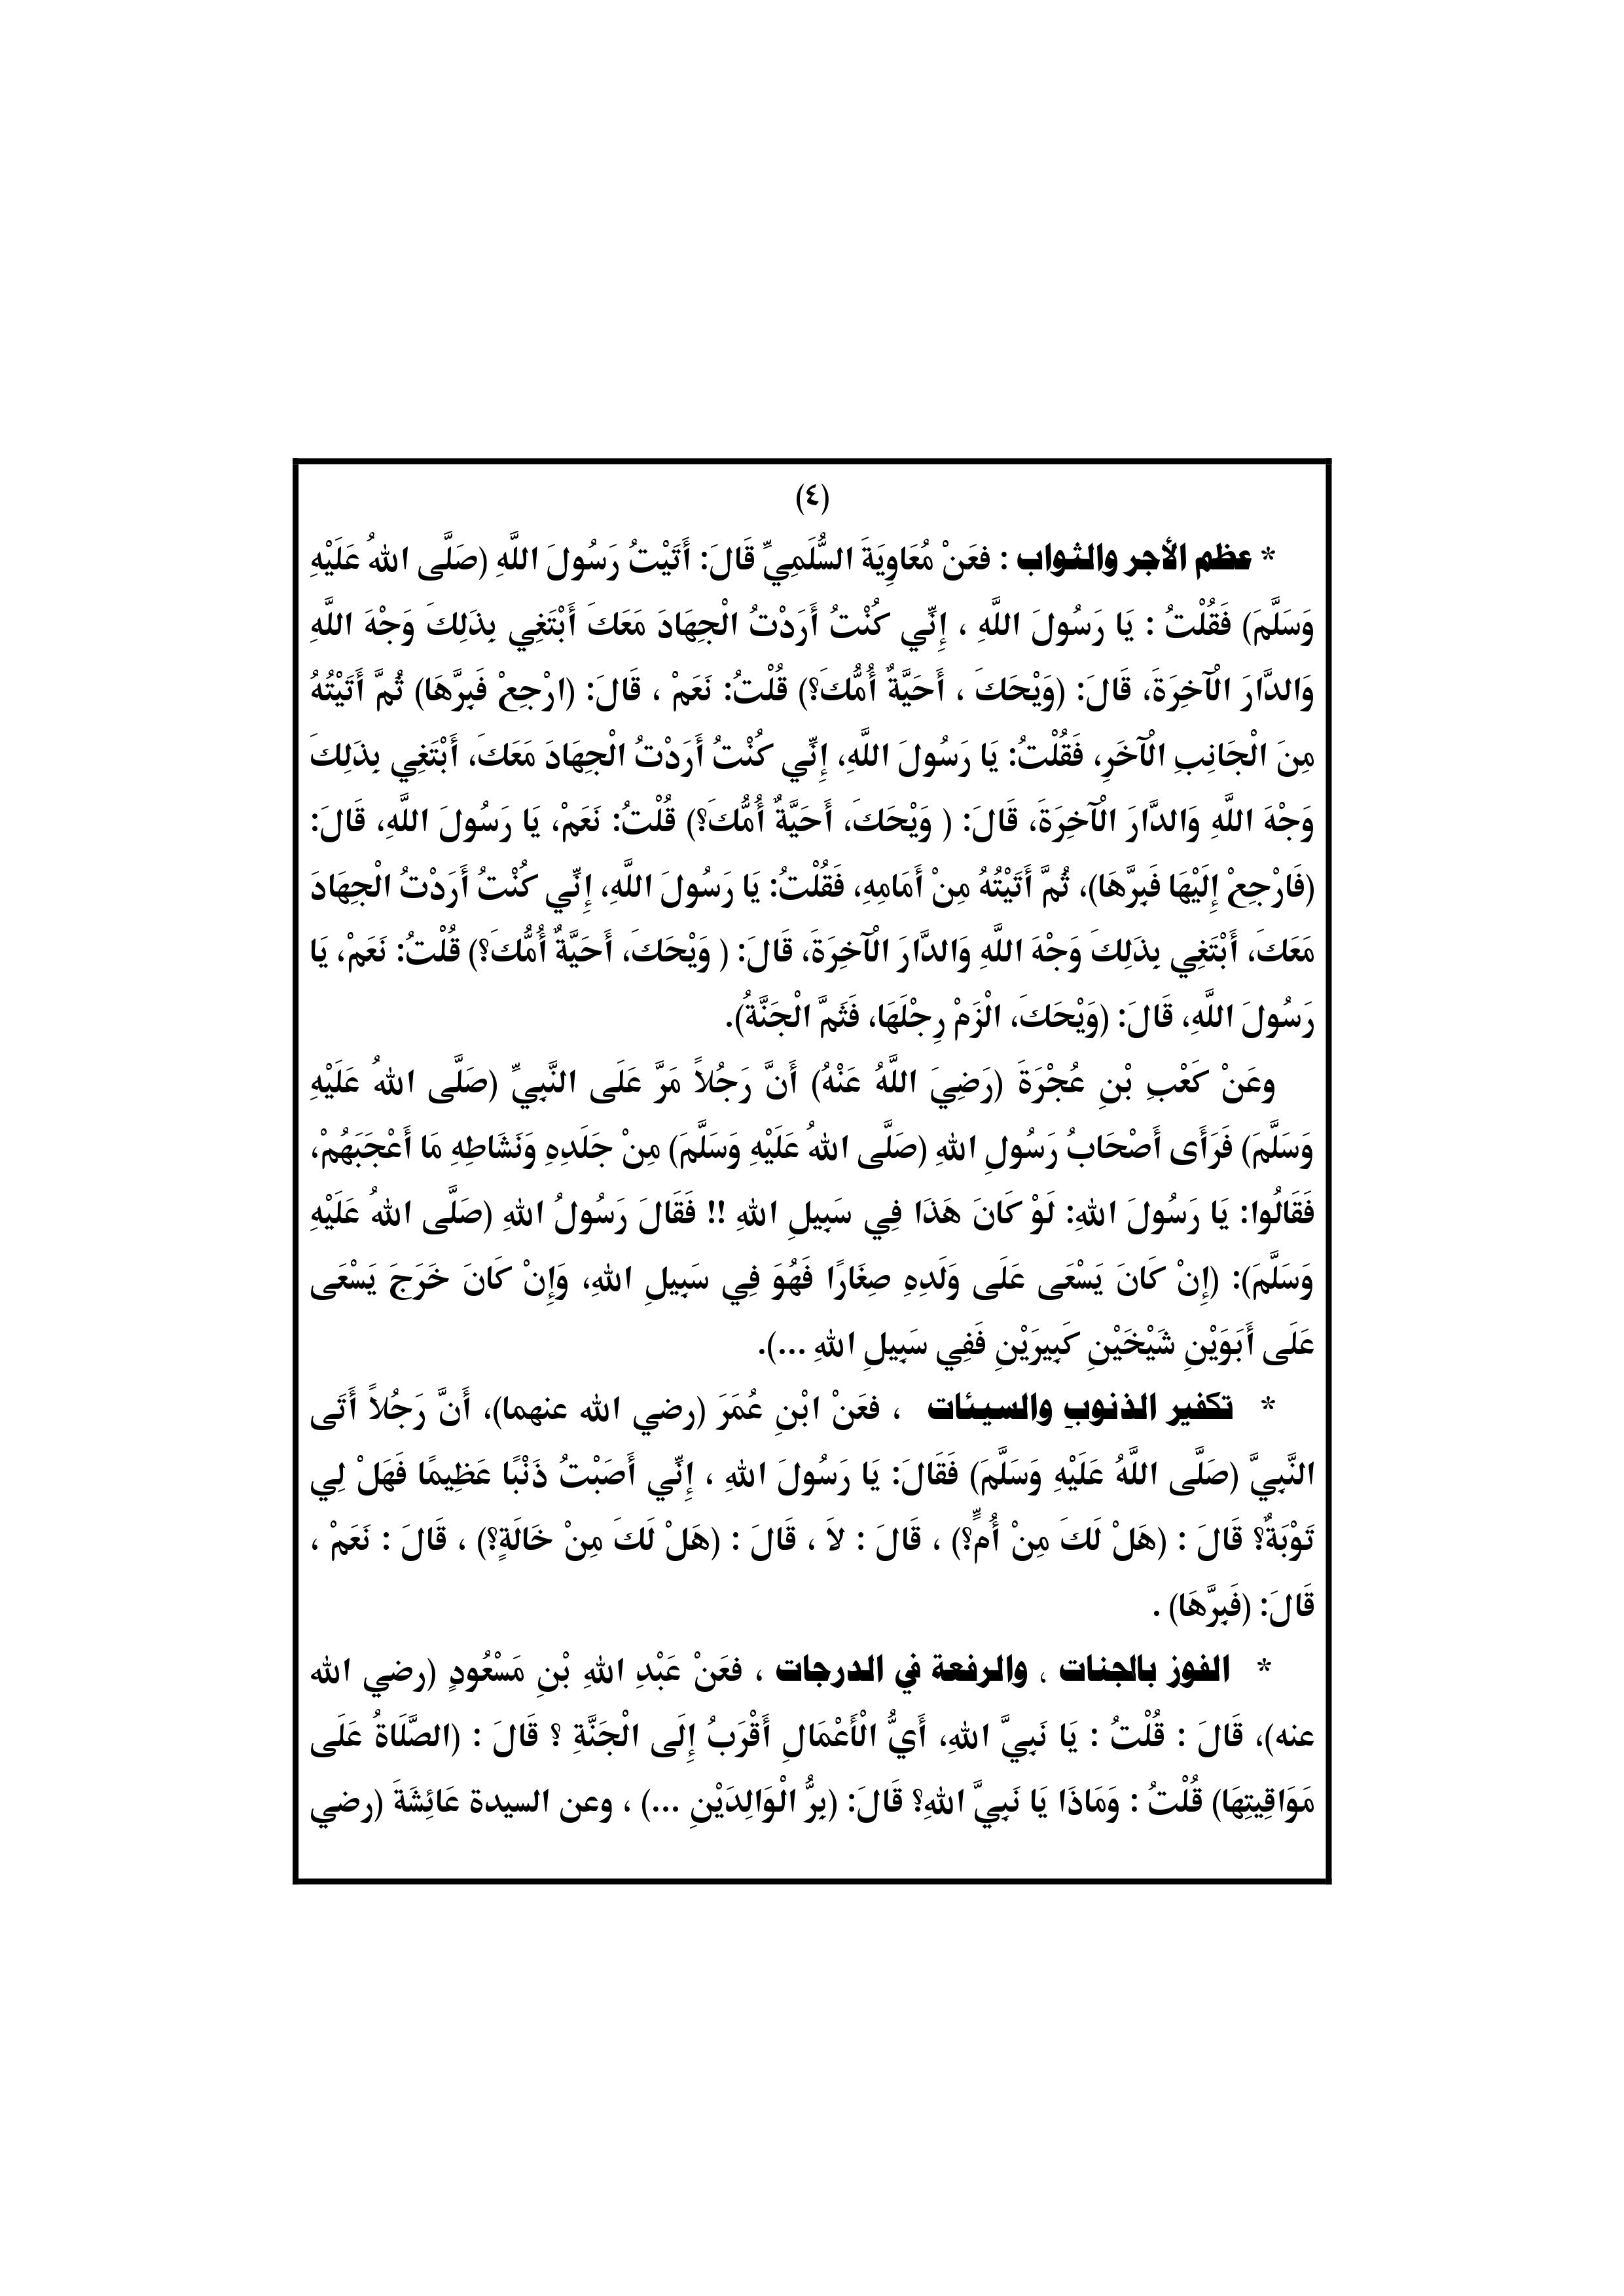 (٤)
* عظم الأجر والثواب : فعَنْ مُعَاوِيَةَ السُّلَمِيِّ قَالَ: أَتَيْتُ رَسُولَ اللَّهِ (صَلَّى اللهُ عَلَيْهِ
وَسَلَّمَ) فَقُلْتُ : يَا رَسُولَ اللَّهِ ، إِنِّي كُنْتُ أَرَدْتُ الْجِهَادَ مَعَكَ أَبْتَغِي بِذَلِكَ وَجْهَ اللَّهِ
وَالدَّارَ الْآخِرَةَ، قَالَ: (وَيْحَكَ ، أَحَيَّةٌ أُمُّكَ؟) قُلْتُ: نَعَمْ ، قَالَ: (ارْجِعْ فَبِرَّهَا) ثُمَّ أَتَيْتُهُ
مِنَ الْجَانِبِ الْآخَرِ، فَقُلْتُ: يَا رَسُولَ اللَّهِ، إِنِّي كُنْتُ أَرَدْتُ الْجِهَادَ مَعَكَ، أَبْتَغِي بِذَلِكَ
وَجْهَ اللَّهِ وَالدَّارَ الْآخِرَةَ، قَالَ: ( وَيْحَكَ، أَحَيَّةٌ أُمُّكَ؟) قُلْتُ: نَعَمْ، يَا رَسُولَ اللَّهِ، قَالَ:
(فَارْجِعْ إِلَيْهَا فَبِرَّهَا)، ثُمَّ أَتَيْتُهُ مِنْ أَمَامِهِ، فَقُلْتُ: يَا رَسُولَ اللَّهِ، إِنِّي كُنْتُ أَرَدْتُ الْجِهَادَ
مَعَكَ، أَبْتَغِي بِذَلِكَ وَجْهَ اللَّهِ وَالدَّارَ الْآخِرَةَ، قَالَ: ( وَيْحَكَ، أَحَيَّةٌ أُمُّكَ؟) قُلْتُ: نَعَمْ، يَا
رَسُولَ اللَّهِ، قَالَ: (وَيْحَكَ، الْزَمْ رِجْلَهَا، فَثَمَّ الْجَنَّةُ).
وعَنْ كَعْبِ بْنِ عُجْرَةَ (رَضِيَ اللَّهُ عَنْهُ) أَنَّ رَجُلاً مَرَّ عَلَى النَّبِيِّ (صَلَّى اللهُ عَلَيْهِ
وَسَلَّمَ) فَرَأَى أَصْحَابُ رَسُولِ اللهِ (صَلَّى اللهُ عَلَيْهِ وَسَلَّمَ) مِنْ جَلَدِهِ وَنَشَاطِهِ مَا أَعْجَبَهُمْ،
فَقَالُوا: يَا رَسُولَ اللهِ: لَوْ كَانَ هَذَا فِي سَبِيلِ اللهِ !! فَقَالَ رَسُولُ اللهِ (صَلَّى اللهُ عَلَيْهِ
وَسَلَّمَ): (إِنْ كَانَ يَسْعَى عَلَى وَلَدِهِ صِغَارًا فَهُوَ فِي سَبِيلِ اللهِ، وَإِنْ كَانَ خَرَجَ يَسْعَى
عَلَى أَبَوَيْنِ شَيْخَيْنِ كَبِيرَيْنِ فَفِي سَبِيلِ اللهِ ...).
* تكفير الذنوب والسيئات ، فعَنْ ابْنِ عُمَرَ (رضي الله عنهما)، أَنَّ رَجُلاً أَتَى
النَّبِيَّ (صَلَّى اللَّهُ عَلَيْهِ وَسَلَّمَ) فَقَالَ: يَا رَسُولَ اللهِ ، إِنِّي أَصَبْتُ ذَنْبًا عَظِيمًا فَهَلْ لِي
تَوْبَةٌ؟ قَالَ : (هَلْ لَكَ مِنْ أُمٍّ؟) ، قَالَ : لاَ ، قَالَ : (هَلْ لَكَ مِنْ خَالَةٍ؟) ، قَالَ : نَعَمْ ،
قَالَ: (فَبِرَّهَا) .
* الفوز بالجنات ، والرفعة في الدرجات ، فعَنْ عَبْدِ اللهِ بْنِ مَسْعُودٍ (رضي الله
عنه)، قَالَ : قُلْتُ : يَا نَبِيَّ اللهِ، أَيُّ الْأَعْمَالِ أَقْرَبُ إِلَى الْجَنَّةِ ؟ قَالَ : (الصَّلَاةُ عَلَى
مَوَاقِيتِهَا) قُلْتُ : وَمَاذَا يَا نَبِيَّ اللهِ؟ قَالَ: (بِرُّ الْوَالِدَيْنِ ...) ، وعن السيدة عَائِشَةَ (رضي